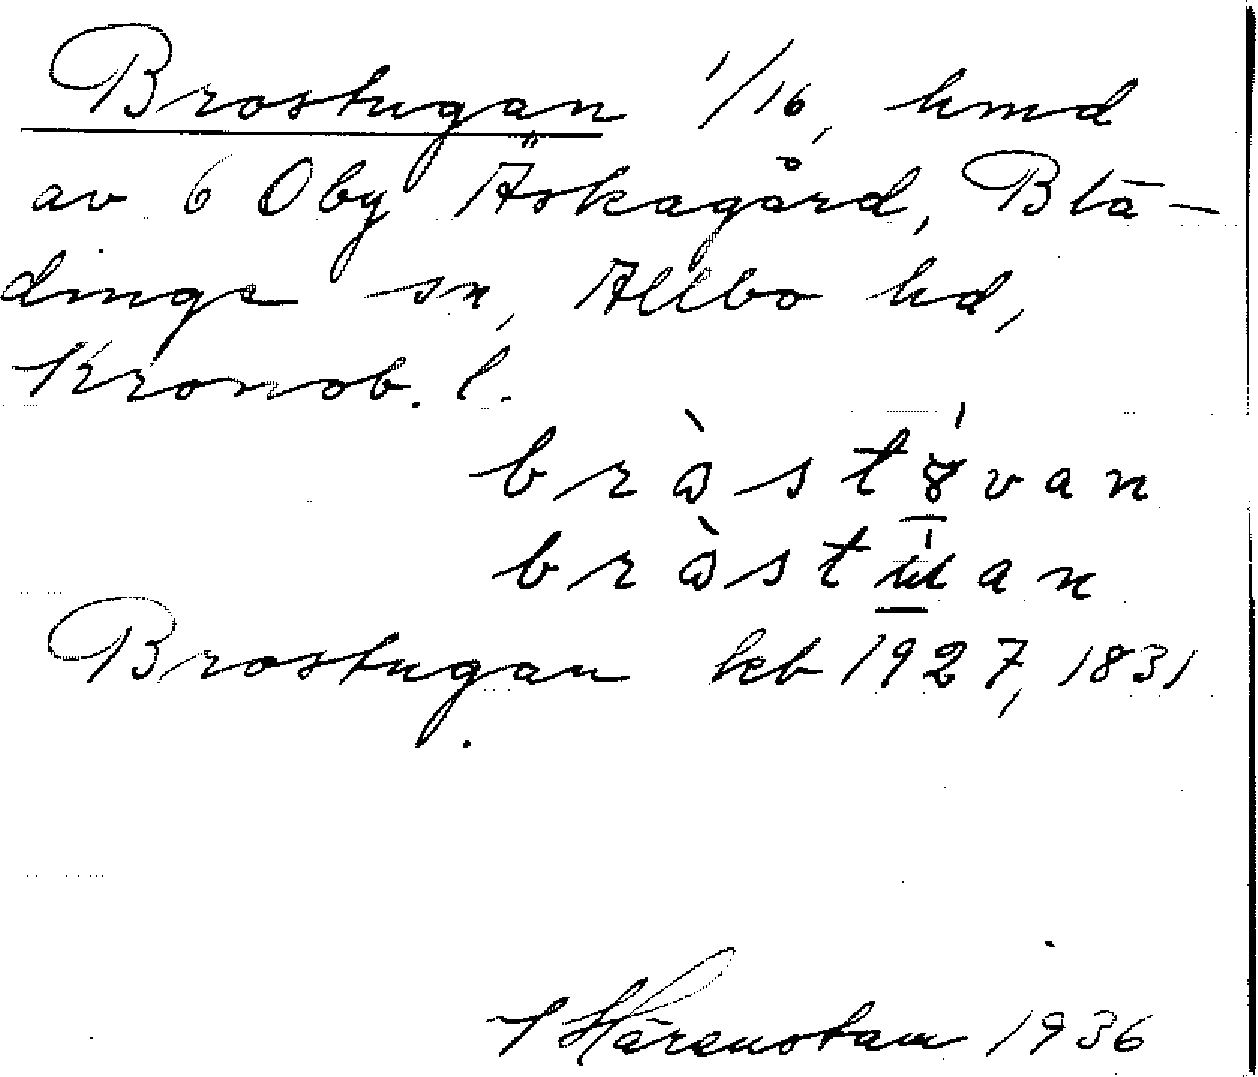 Brostugan 1/16, hmd
av 6 Oby Äskagård, Blä-
dinge sn, Allbo hd,
Kronob. l.
bràst8́van
bràstúan
Brostugan keb 1927, 1831
Härenstam 1936